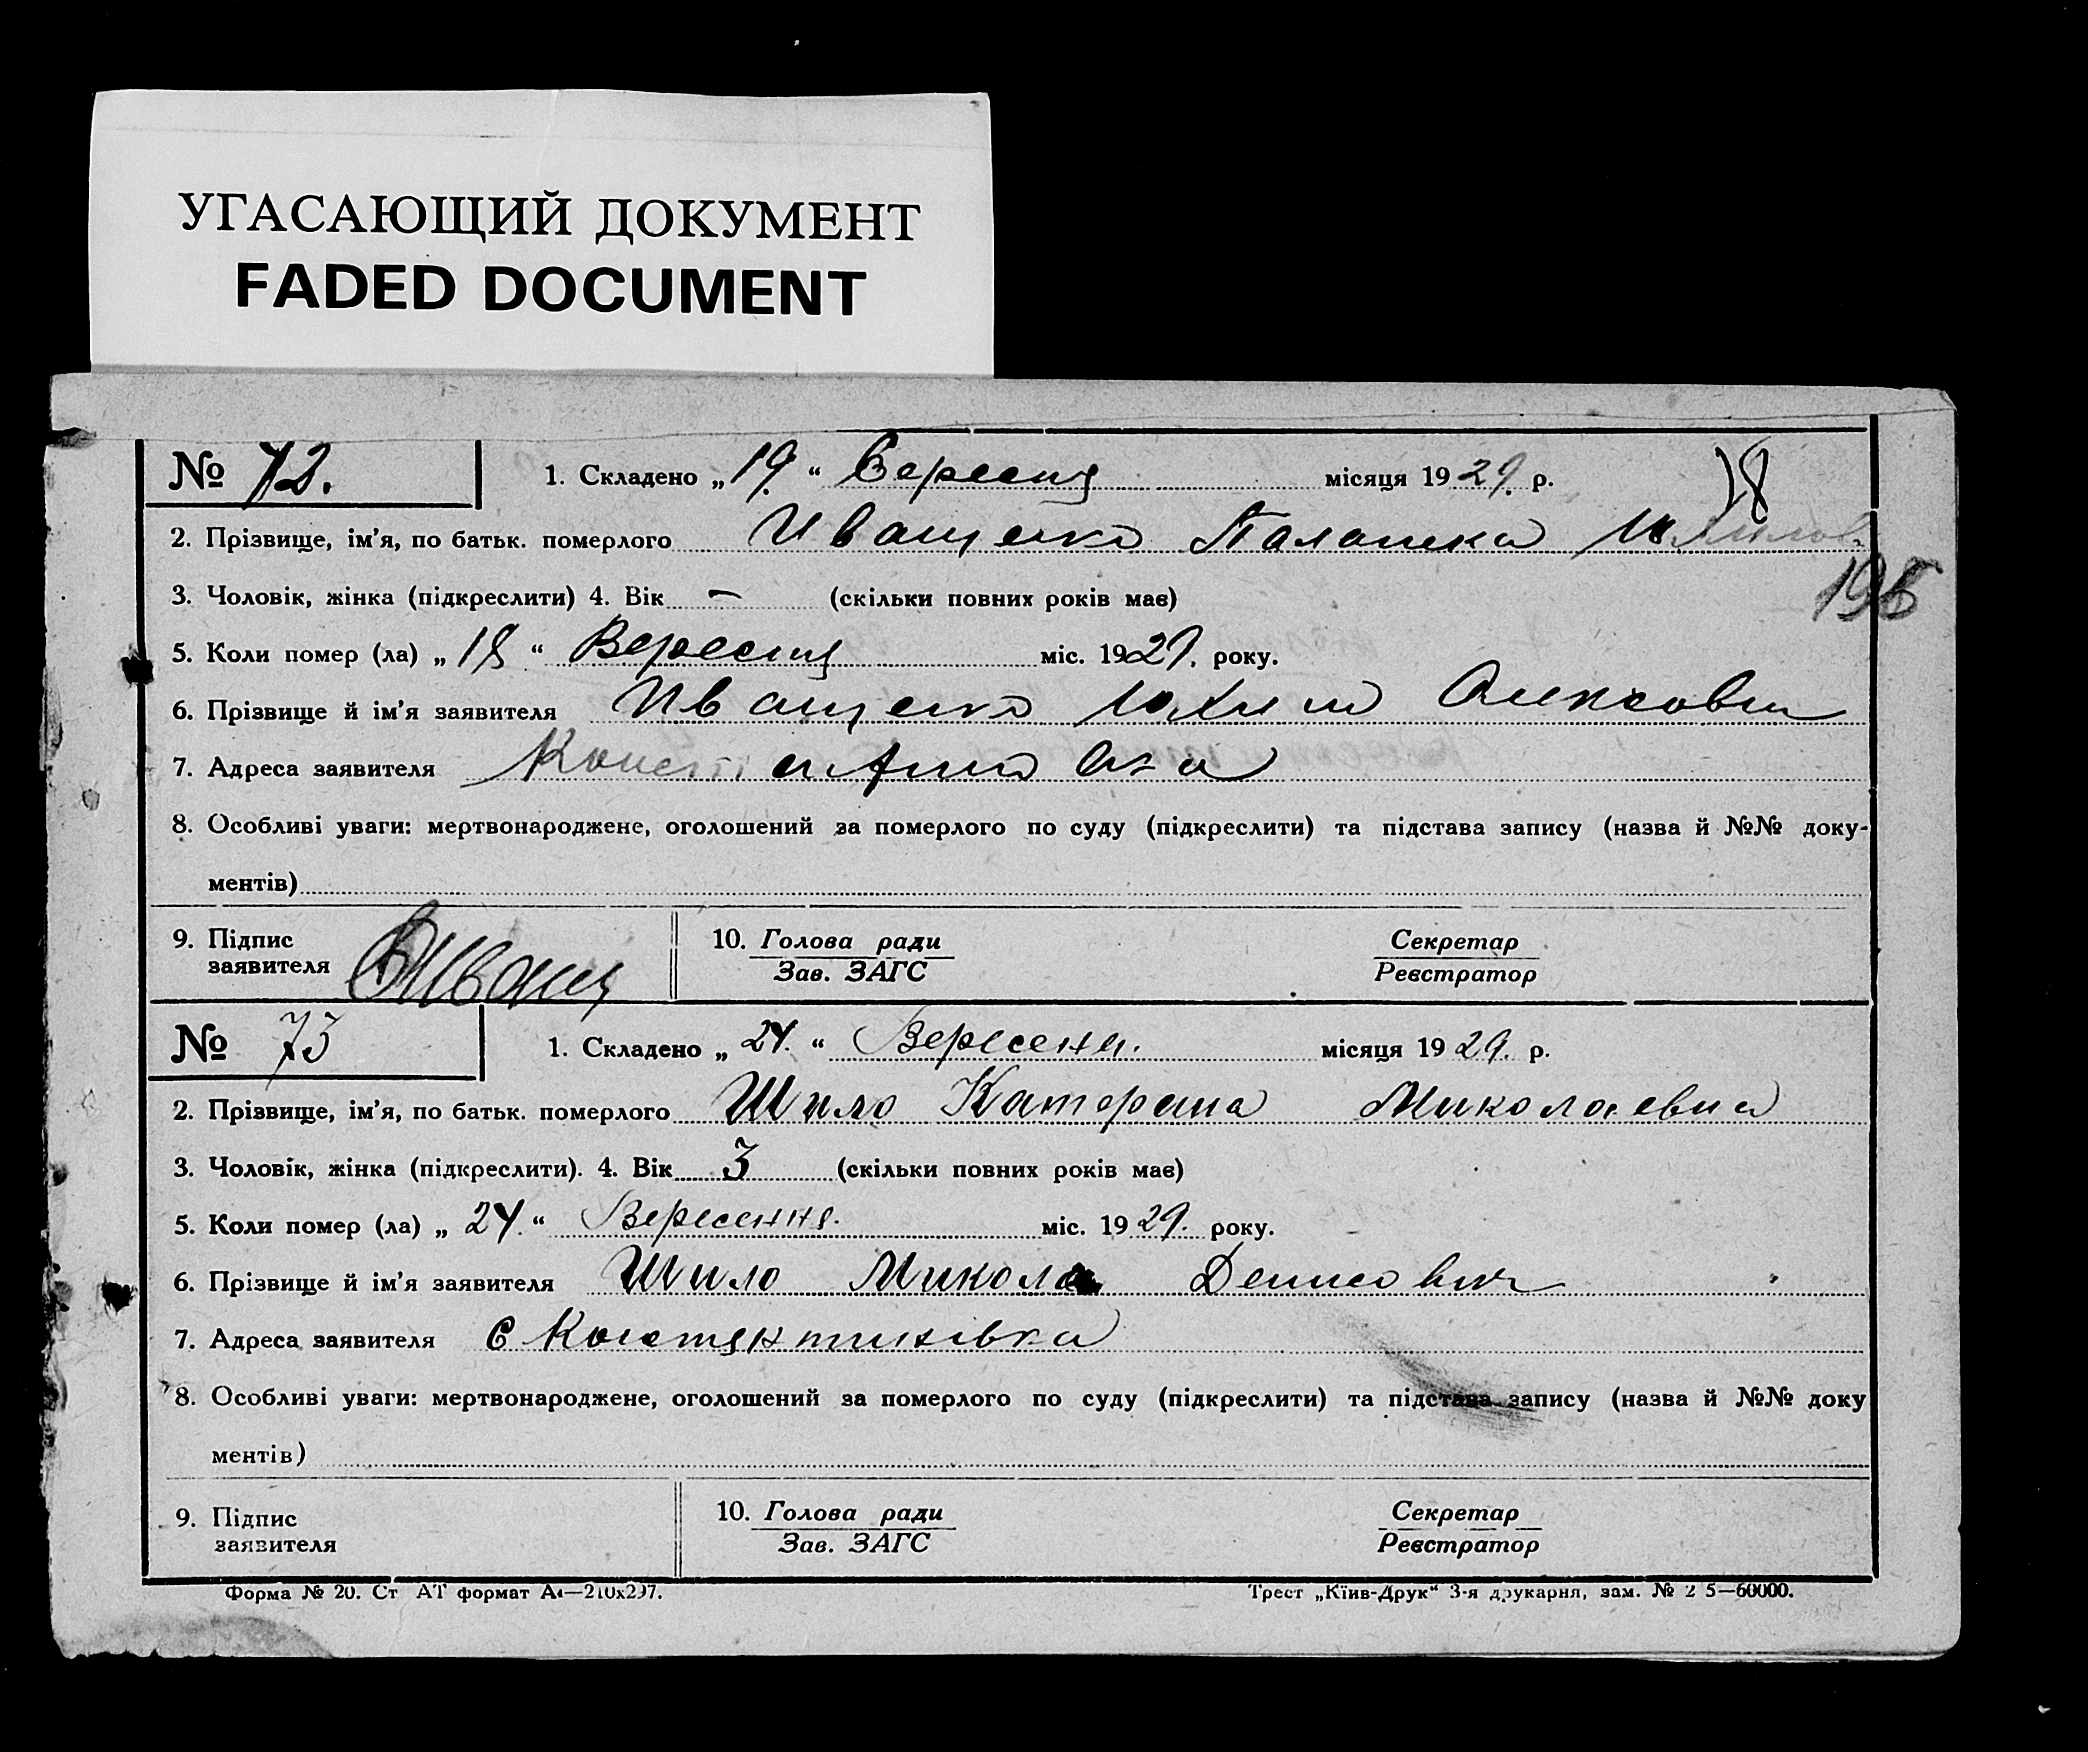 УГАСАЮЩИЙ ДОКУМЕНТ
FADED DOCUMENT
№ 72. 1. Складено „ 19 “ Вересня місяця 1929. р.
2. Прізвище, ім’я, по батьк. померлого Иващенко Палашка
3. Чоловік, жінка (підкреслити) 4. Вік – (скільки повних років має)
195
5. Коли помер (ла) „ 18 “ Вересня міс. 1929. року.
6. Прізвище й ім’я заявителя Иващенко Юхим
7. Адреса заявителя
8. Особливі уваги: мертвонароджене, оголошений за померлого по суду (підкреслити) та підстава запису (назва й №№ доку-
ментів)
9. Підпис 10. Голова ради Секретар
заявителя Зав. ЗАГС Реєстратор
№ 73 1. Складено „ 24. “ Вересеня. місяця 1929. р.
2. Прізвище, ім’я, по батьк. померлого Шило Катерина Миколаевна
3. Чоловік, жінка (підкреслити). 4. Вік 3 (скільки повних років має)
5. Коли помер (ла) „ 24. “ Вересення. міс. 1929. року.
6. Прізвище й ім’я заявителя Шило Микола Денисович
7. Адреса заявителя с
8. Особливі уваги: мертвонароджене, оголошений за померлого по суду (підкреслити) та підстава запису (назва й №№ доку
ментів)
9. Підпис 10. Голова ради Секретар
заявителя Зав. ЗАГС Реєстратор
Форма № 20. Ст АТ формат А4—210х297. Трест „Київ-Друк“ 3-я друкарня, зам. № 2 5—60000.